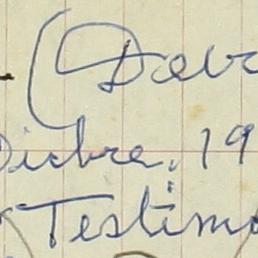 (Dav
Dicbre. 19
Testimo